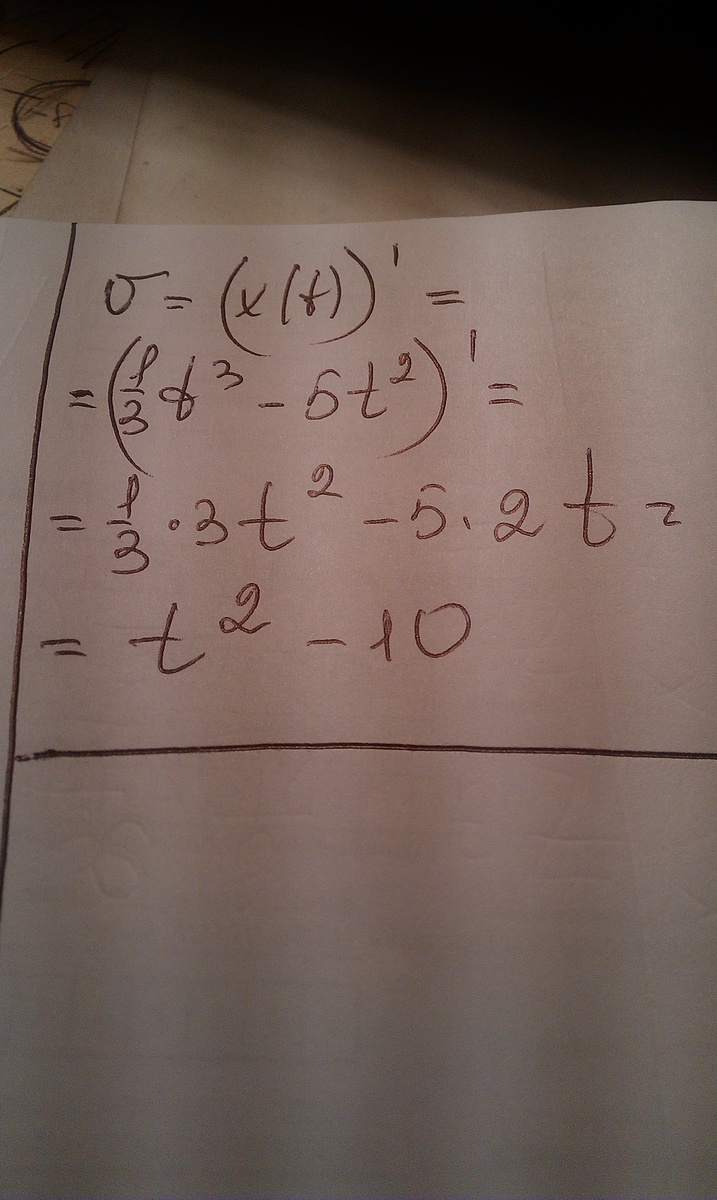 v = (x(t))' =
= (1/3 t³ - 5t²)' =
= 1/3 · 3t² - 5 · 2t =
= t² - 10